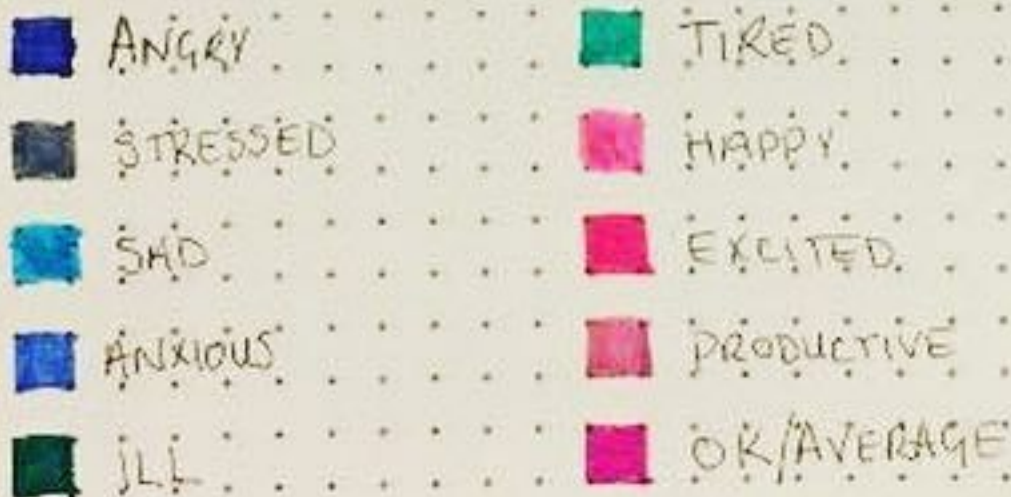 ANGRY
STRESSED
SAD
ANXIOUS
ILL
TIRED
HAPPY
EXCITED
PRODUCTIVE
OK/AVERAGE